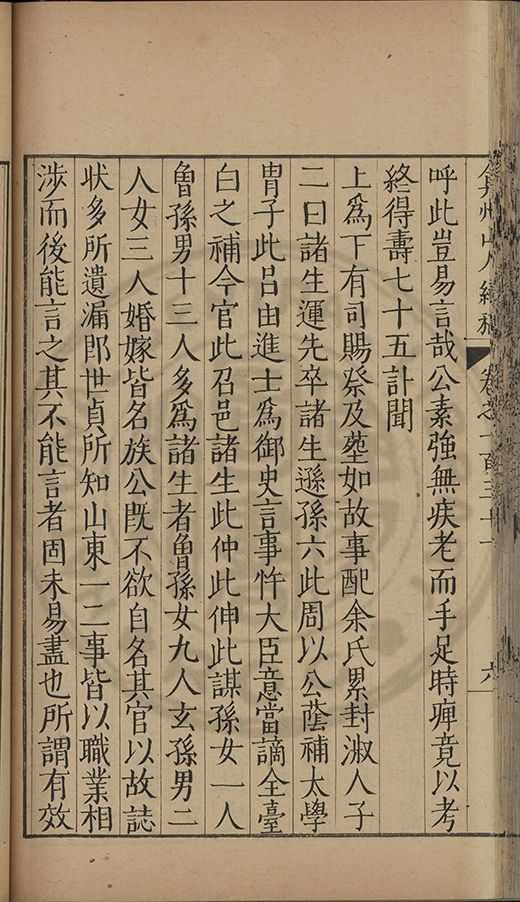 弇州山人續稿 卷之一百三十一 六
呼此豈易言哉公素強無疾老而手足時痺竟以考
終得壽七十五訃聞
上爲下有司賜祭及塋如故事配余氏累封淑人子
二曰諸生運先卒諸生遜孫六此周以公蔭補太學
胄子此呂由進士爲御史言事忤大臣意當謫全臺
白之補今官此召邑諸生此仲此伸此謀孫女一人
曾孫男十三人多爲諸生者曾孫女九人玄孫男二
人女三人婚嫁皆名族公既不欲自名其官以故誌
狀多所遺漏卽世貞所知山東一二事皆以職業相
涉而後能言之其不能言者固未易盡也所謂有效